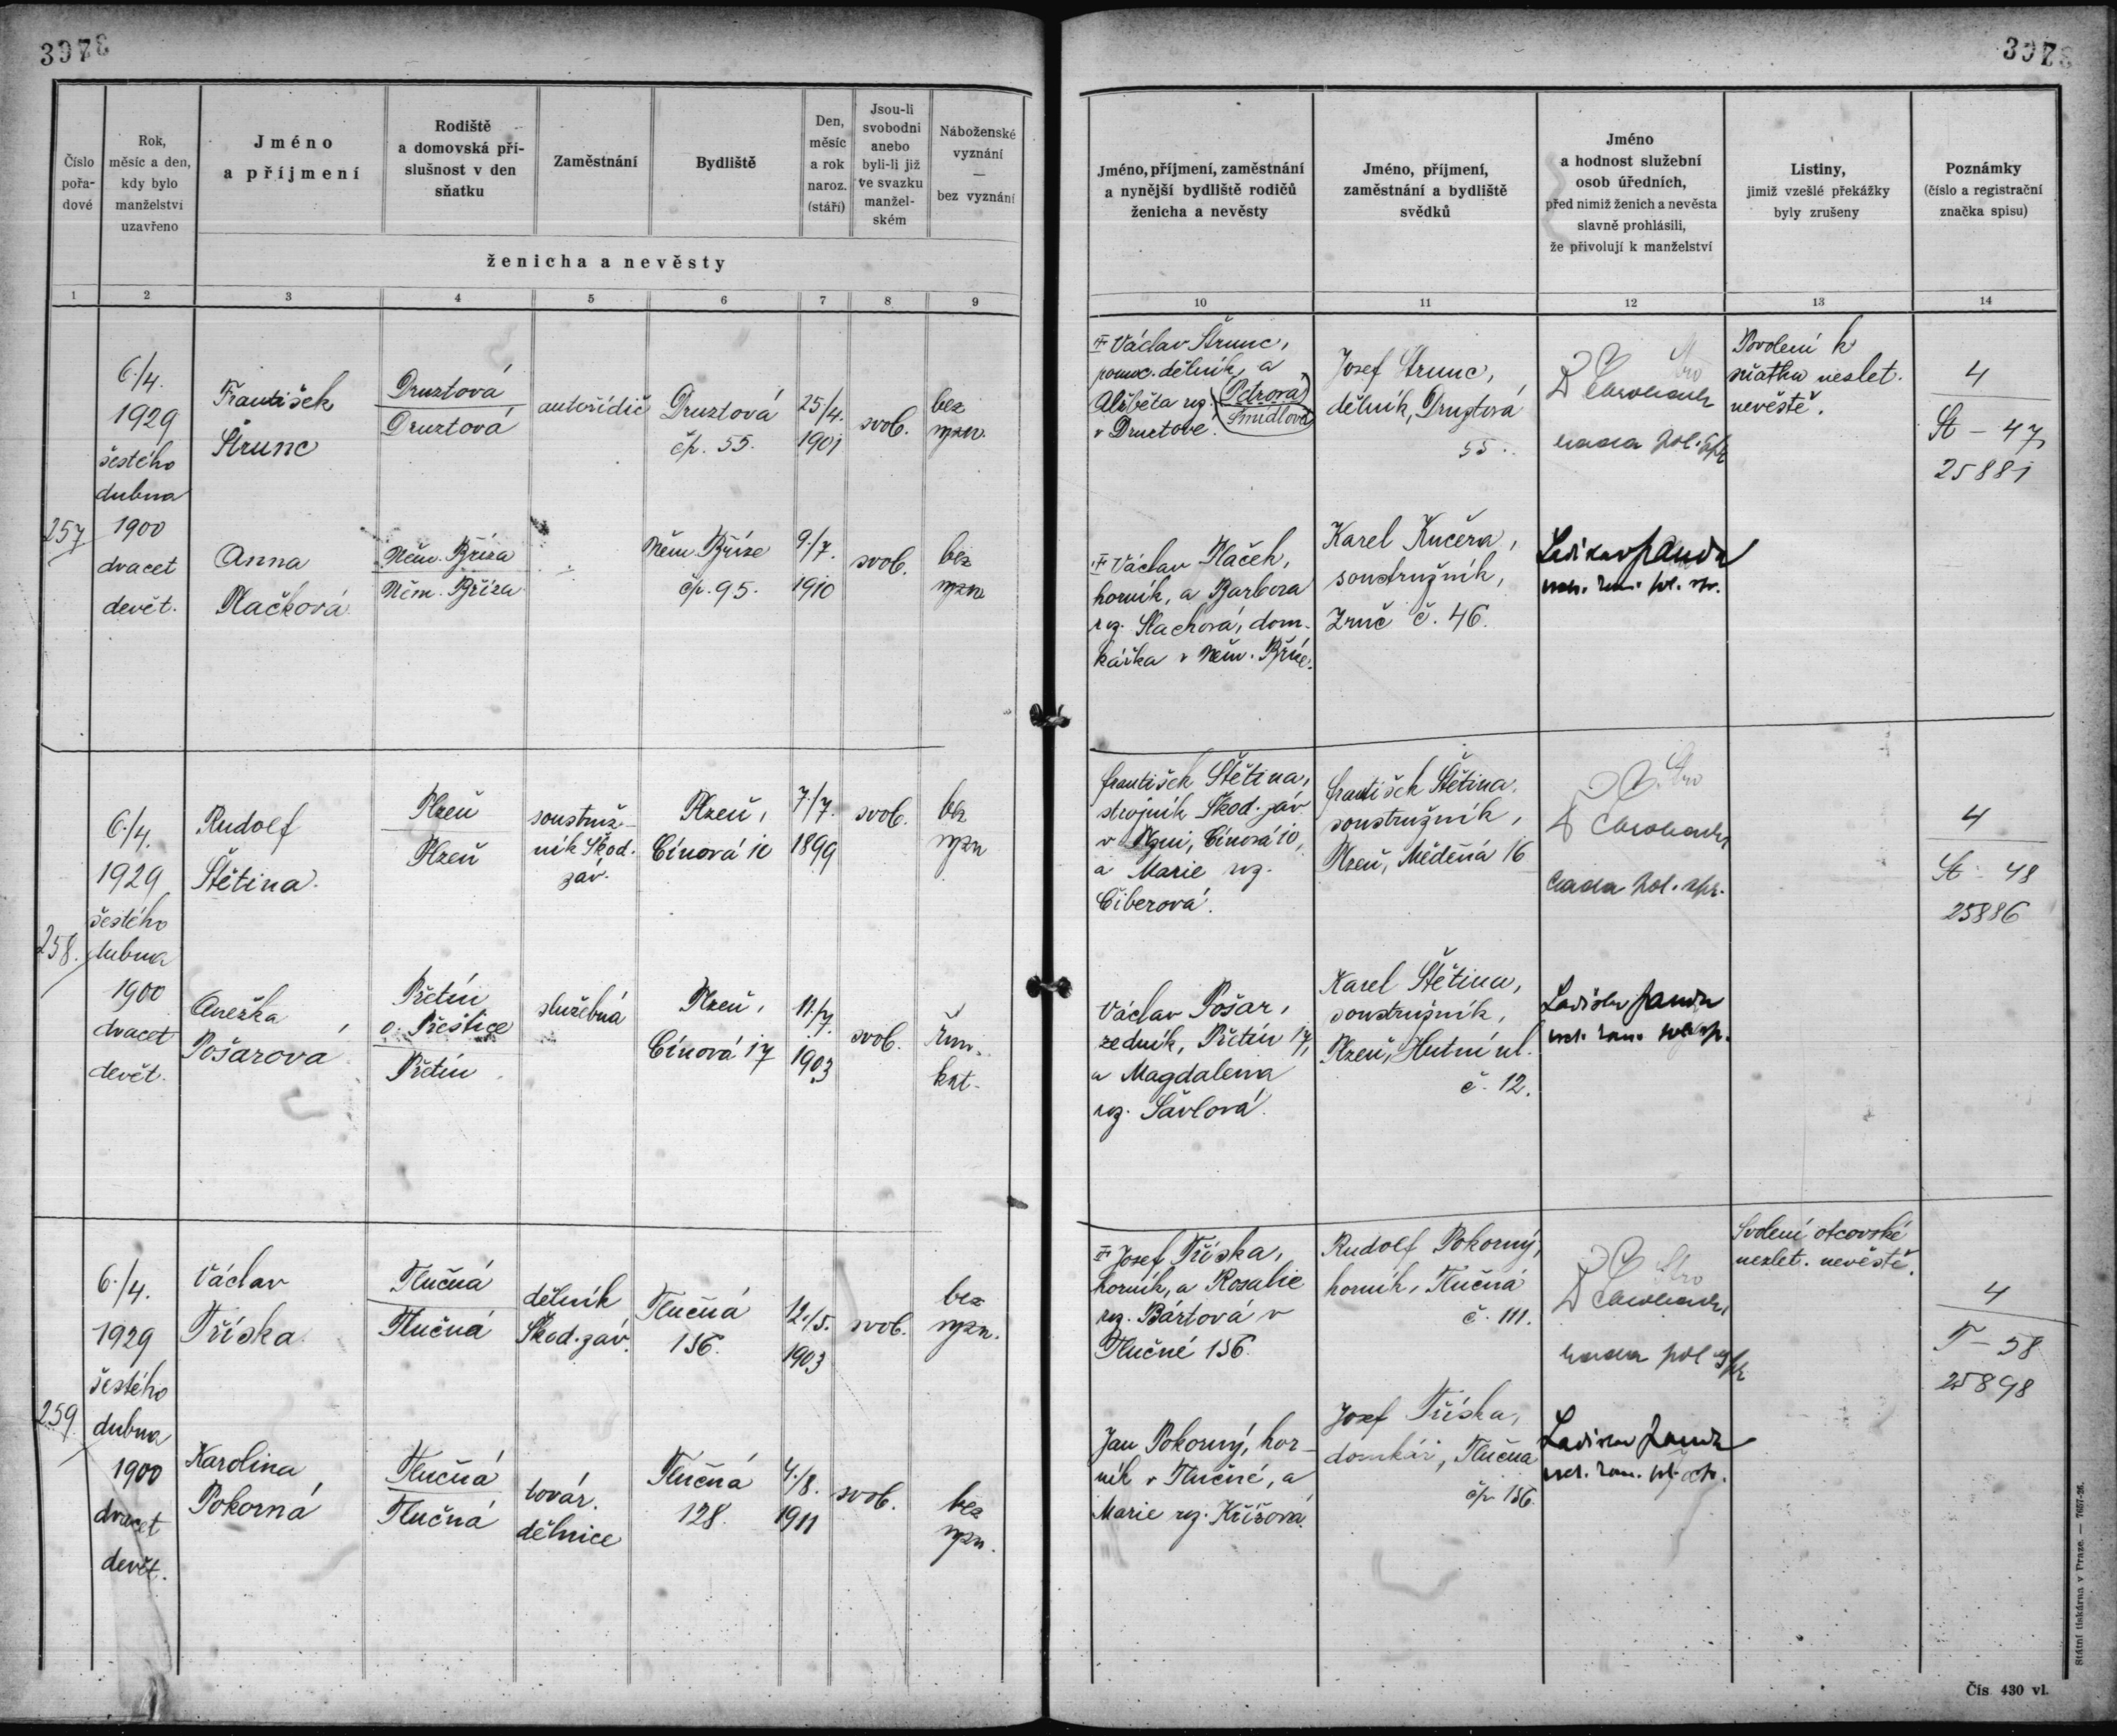 3973
3973
Číslo pořa-dové
Rok, měsíc a den, kdy bylo manželství uzavřeno
Jméno a příjmení
Rodiště a domovská pří-slušnost v den sňatku
Zaměstnání
Bydliště
Den, měsíc a rok naroz. (stáří)
Jsou-li svobodni anebo byli-li již ve svazku manžel-ském
Náboženské vyznání — bez vyznání
ženicha a nevěsty
Jméno, příjmení, zaměstnání a nynější bydliště rodičů ženicha a nevěsty
Jméno, příjmení, zaměstnání a bydliště svědků
Jméno a hodnost služební osob úředních, před nimiž ženich a nevěsta slavně prohlásili, že přivolují k manželství
Listiny, jimiž vzešlé překážky byly zrušeny
Poznámky (číslo a registrační značka spisu)
1 2 3 4 5 6 7 8 9 10 11 12 13 14
257
6./4.
1929
šestého
dubna
1900
dvacet
devět.
František
Štrunc
Druztová
Druztová
autořidič
Druztová
čp. 55.
25/4.
1901
svob.
bez
vyzn.
Václav Štrunc,
pomoc. dělník, a
Alžběta roz. (Petrová)
Šmídlová
v Druztové.
Josef Štrunc,
dělník, Druztová
55.
rada pol. spr.
Povolení k
sňatku neslet.
nevěstě.
4
St – 47
25881
Anna
Plačková
Něm. Bříza
Něm. Bříza
Něm. Bříze
čp. 95.
9./7.
1910
svob.
bez
vyzn.
Václav Plaček,
horník, a Barbora
roz. Stachová, dom-
kářka v Něm. Bříze.
Karel Kučera,
soustružník,
Zruč č. 46.
Ladislav Janda
258.
6./4.
1929
šestého
dubna
1900
dvacet
devět.
Rudolf
Štětina.
Plzeň
Plzeň
soustruž-
ník Škod.
záv.
Plzeň,
Cínová 10
7./7.
1899
svob.
bez
vyzn
František Štětina,
strojník Škod. záv.
v Plzni, Cínová 10,
a Marie roz.
Ciberová.
František Štětina,
soustružník,
Plzeň, Měděná 16
rada pol. spr.
4
St – 48
25886
Anežka
Pošarova
Přetín
o. Přeštice
Přetín
služebná
Plzeň,
Cínová 17
11./7.
1903
svob.
řím.
kat.
Václav Pošar,
zedník, Přetín 17,
a Magdalena
roz. Šavlová.
Karel Štětina,
soustružník,
Plzeň, Hutní ul.
č. 12.
Ladislav Janda
259.
6./4.
1929
šestého
dubna
1900
dvacet
devět.
Václav
Tříska.
Tlučná
Tlučná
dělník
Škod. záv.
Tlučná
156.
12./5.
1903
svob.
bez
vyzn.
Josef Tříska,
horník, a Rosalie
roz. Bártová v
Tlučné 156.
Rudolf Pokorný,
horník, Tlučná
č. 111.
rada pol. spr
Svolení otcovské
nezlet. nevěstě.
4
T – 58
25898
Karolina
Pokorná
Tlučná
Tlučná
továr.
dělnice
Tlučná
128.
4./8.
1911
svob.
bez
vyzn.
Jan Pokorný, hor-
ník v Tlučné, a
Marie roz. Křížová.
Josef Tříska,
domkář, Tlučná
čp. 156.
Ladislav Janda
Státní tiskárna v Praze. — 7657-26.
Čís. 430 vl.